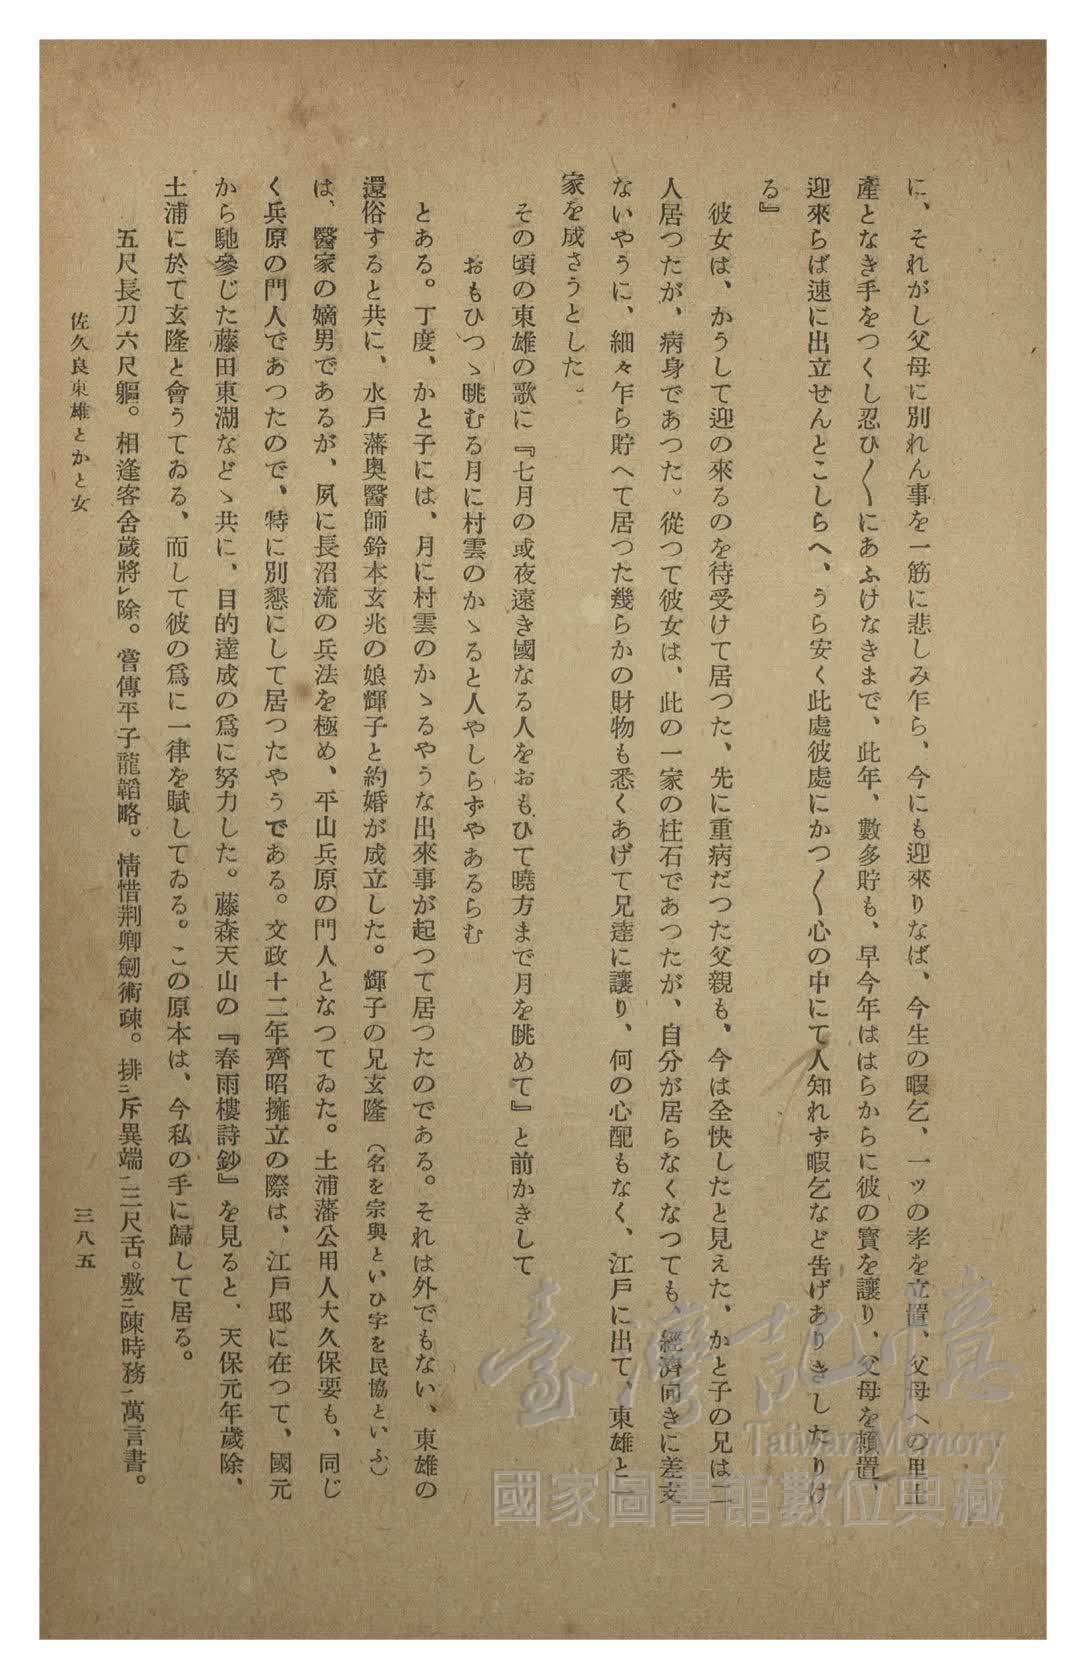 に、それがし父母に別れん事を一筋に悲しみ乍ら、今にも迎來りなば、今生の暇乞、一ッの孝を立置、父母への里土
產となき手をつくし忍ひ〱にあふけなきまで、此年、數多貯も、早今年ははらからに彼の寶を讓り、父母を賴置、
迎來らば速に出立せんとこしらへ、うら安く此處彼處にかつ〱心の中にて人知れず暇乞など告げありきしたりけ
る』
彼女は、かうして迎の來るのを待受けて居つた、先に重病だつた父親も、今は全快したと見えた、かと子の兄は二
人居つたが、病身であつた。從つて彼女は、此の一家の柱石であつたが、自分が居らなくなつても、經濟向きに差支
ないやうに、細々乍ら貯へて居つた幾らかの財物も悉くあげて兄達に讓り、何の心配もなく、江戶に出て、東雄と一
家を成さうとした。
その頃の東雄の歌に『七月の或夜遠き國なる人をおもひて曉方まで月を眺めて』と前かきして
おもひつゝ眺むる月に村雲のかゝると人やしらずやあるらむ
とある。丁度、かと子には、月に村雲のかゝるやうな出來事が起つて居つたのである。それは外でもない、東雄の
還俗すると共に、水戶藩奧醫師鈴本玄兆の娘輝子と約婚が成立した。輝子の兄玄隆（名を宗與といひ字を民協といふ）
は、醫家の嫡男であるが、夙に長沼流の兵法を極め、平山兵原の門人となつてゐた。土浦藩公用人大久保要も、同じ
く兵原の門人であつたので、特に別懇にして居つたやうである。文政十二年齊昭擁立の際は、江戶邸に在つて、國元
から馳參じた藤田東湖などゝ共に、目的達成の爲に努力した。藤森天山の『春雨樓詩鈔』を見ると、天保元年歲除、
土浦に於て玄隆と會うてゐる、而して彼の爲に一律を賦してゐる。この原本は、今私の手に歸して居る。
五尺長刀六尺軀。相逢客舍歲將レ除。嘗傳平子龍韜略。情惜荆卿劒術疎。排二斥異端一三尺舌。敷二陳時務一萬言書。
佐久良東雄とかと女
三八五
臺灣記憶
Taiwan Memory
國家圖書館數位典藏